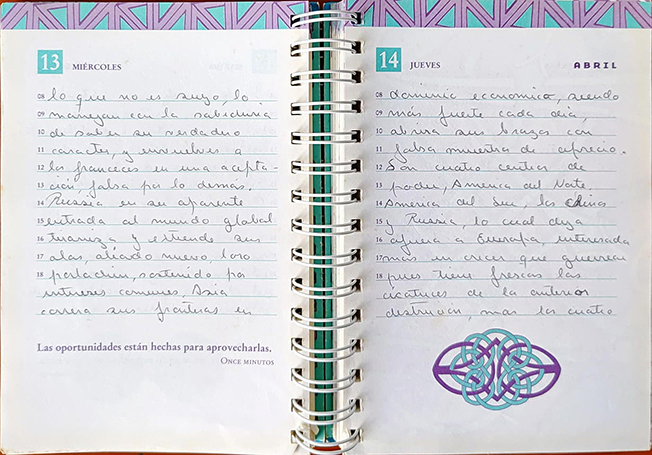 13 MIÉRCOLES
08 lo que no es suyo, lo
09 manejan con la sabiduria
10 de saber su verdadero
11 caracter, y envuelven a
12 los franceces en una acepta-
13 ción, falsa por lo demás.
14 Russia en su aparente
15 entrada al mundo global
16 y extiende sus
17 alas, aliado nuevo,
18 sostenido por
intereses comunes, Asia
correra sus fronteras en
Las oportunidades están hechas para aprovecharlas.
ONCE MINUTOS
14 JUEVES
ABRIL
08 dominio economico, siendo
09 más fuerte cada dia,
10 abrira sus brazos con
11 falsa muestra de aprecio.
12 Son cuatro centros de
13 poder, America del Norte
14 America del Sur, los chinos
15 y Russia, lo cual deja
16 afuera a Europa, interesada
17 más en crecer que guerrear
18 pues tiene frescas las
cicatrices de la anterior
destrución, mas los cuatro